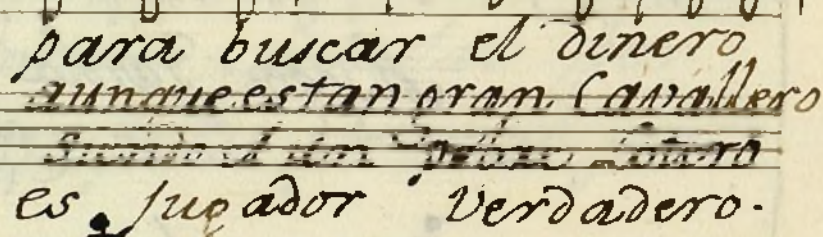 para buscar el dinero
aunque es tan gran Cavallero
siendo el don
es jugador verdadero.